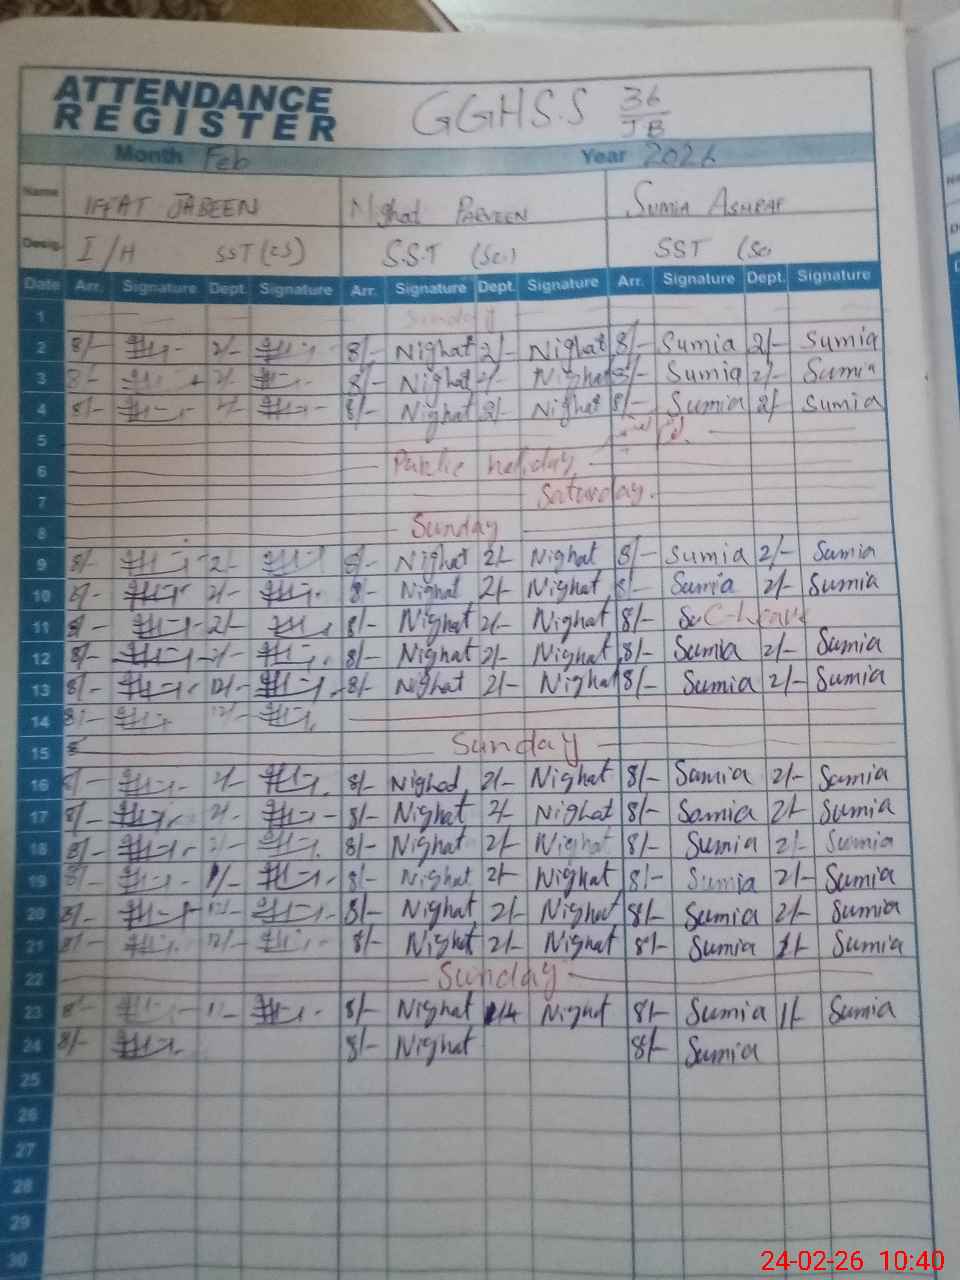 ATTENDANCE REGISTER GGHS.S 36/JB
Month Feb Year 2026
Name IFFAT JABEEN Nighat PARVEEN SUMIA ASHRAF
Desig. I/H SST (CS) S.S.T (Sc.) SST (Sc
Date Arr. Signature Dept. Signature Arr. Signature Dept. Signature Arr. Signature Dept. Signature
1 Sunday
2 8/- 2/- 8/- Nighat 2/- Nighat 8/- Sumia 2/- Sumia
3 8/- 2/- 8/- Nighat 2/- Nighat 8/- Sumia 2/- Sumia
4 8/- 2/- 8/- Nighat 2/- Nighat 8/- Sumia 2/- Sumia
5
6 Public holiday
7 Saturday.
8 Sunday
9 8/- 2/- 8/- Nighat 2/- Nighat 8/- Sumia 2/- Sumia
10 8/- 2/- 8/- Nighat 2/- Nighat 8/- Sumia 2/- Sumia
11 8/- 2/- 8/- Nighat 2/- Nighat 8/- Su C-Leave
12 8/- 8/- Nighat 2/- Nighat 8/- Sumia 2/- Sumia
13 8/- 12/- 8/- Nighat 2/- Nighat 8/- Sumia 2/- Sumia
14 8/- 12/-
15 8 Sunday
16 8/- 2/- 8/- Nighat 2/- Nighat 8/- Sumia 2/- Sumia
17 8/- 2/- 8/- Nighat 2/- Nighat 8/- Sumia 2/- Sumia
18 8/- 2/- 8/- Nighat 2/- Nighat 8/- Sumia 2/- Sumia
19 8/- 1/- 8/- Nighat 2/- Nighat 8/- Sumia 2/- Sumia
20 8/- 12/- 8/- Nighat 2/- Nighat 8/- Sumia 2/- Sumia
21 8/- 12/- 8/- Nighat 2/- Nighat 8/- Sumia 1/- Sumia
22 Sunday
23 8/- 1/- 8/- Nighat Nighat 8/- Sumia 1/- Sumia
24 8/- 8/- Nighat 8/- Sumia
25
26
27
28
29
30
24-02-26 10:40